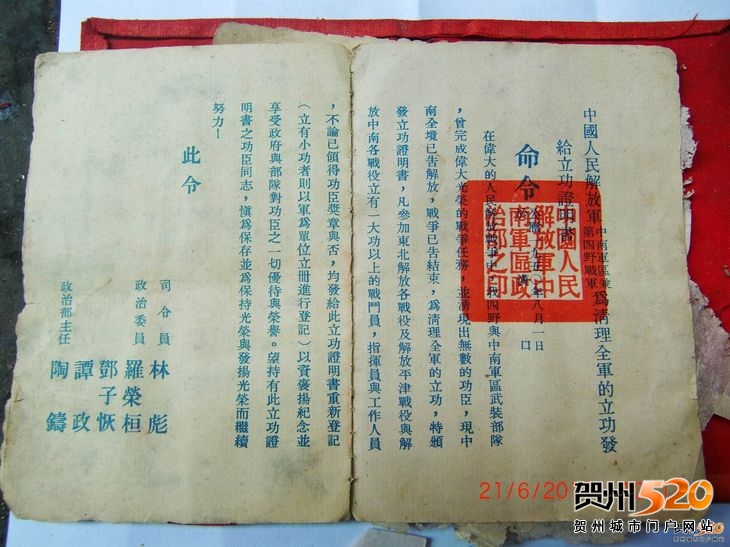 中國人民解放軍中南軍區兼第四野戰軍為清理全軍的立功發
給立功證明書
命令
八月一日
口
在偉大的人民解放戰爭中,我四野與中南軍區武裝部隊
,曾完成偉大光榮的戰爭任務,並湧現出無數的功臣,現中
南全境已告解放,戰爭已告結束,為清理全軍的立功,特頒
發立功證明書,凡參加東北解放各戰役及解放平津戰役與解
放中南各戰役立有一大功以上的戰鬥員,指揮員與工作人員
,不論已領得功臣獎章與否,均發給此立功證明書重新登記
(立有小功者則以軍為單位立冊進行登記)以資褒揚紀念並
享受政府與部隊對功臣之一切優待與榮譽。望持有此立功證
明書之功臣同志,慎為保存並為保持光榮與發揚光榮而繼續
努力!
此令
司令員 林彪
政治委員 羅榮桓
鄧子恢
政治部主任 譚政
陶鑄
中國人民
解放軍中
南軍區政
治部之印
21/6/20
贺州520
贺州城市门户网站